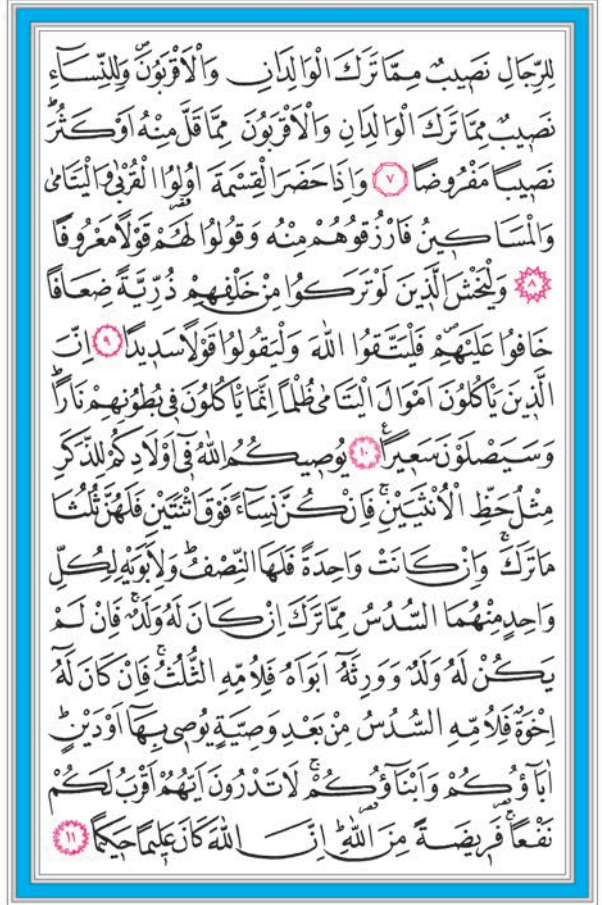 لِلرِّجَالِ نَصِيبٌ مِمَّا تَرَكَ الْوَالِدَانِ وَالْاَقْرَبُونَۖ وَلِلنِّسَٓاءِ
نَصِيبٌ مِمَّا تَرَكَ الْوَالِدَانِ وَالْاَقْرَبُونَ مِمَّا قَلَّ مِنْهُ اَوْ كَثُرَۜ
نَصِيباً مَفْرُوضاً ﴿٧﴾ وَاِذَا حَضَرَ الْقِسْمَةَ اُو۬لُوا الْقُرْبٰى وَالْيَتَامٰى
وَالْمَسَاكِينُ فَارْزُقُوهُمْ مِنْهُ وَقُولُوا لَهُمْ قَوْلاً مَعْرُوفاً
﴿٨﴾ وَلْيَخْشَ الَّذِينَ لَوْ تَرَكُوا مِنْ خَلْفِهِمْ ذُرِّيَّةً ضِعَافاً
خَافُوا عَلَيْهِمْۖ فَلْيَتَّقُوا اللّٰهَ وَلْيَقُولُوا قَوْلاً سَدِيداً ﴿٩﴾ اِنَّ
الَّذِينَ يَأْكُلُونَ اَمْوَالَ الْيَتَامٰى ظُلْماً اِنَّمَا يَأْكُلُونَ فِي بُطُونِهِمْ نَاراًۜ
وَسَيَصْلَوْنَ سَعِيراً۟ ﴿١٠﴾ يُوصِيكُمُ اللّٰهُ فِٓي اَوْلَادِكُمْ لِلذَّكَرِ
مِثْلُ حَظِّ الْاُنْثَيَيْنِۚ فَاِنْ كُنَّ نِسَٓاءً فَوْقَ اثْنَتَيْنِ فَلَهُنَّ ثُلُثَا
مَا تَرَكَۚ وَاِنْ كَانَتْ وَاحِدَةً فَلَهَا النِّصْفُۜ وَلِاَبَوَيْهِ لِكُلِّ
وَاحِدٍ مِنْهُمَا السُّدُسُ مِمَّا تَرَكَ اِنْ كَانَ لَهُ وَلَدٌۚ فَاِنْ لَمْ
يَكُنْ لَهُ وَلَدٌ وَوَرِثَهُٓ اَبَوَاهُ فَلِاُمِّهِ الثُّلُثُۚ فَاِنْ كَانَ لَهُٓ
اِخْوَةٌ فَلِاُمِّهِ السُّدُسُ مِنْ بَعْدِ وَصِيَّةٍ يُوصِي بِهَٓا اَوْ دَيْنٍۜ
اٰبَٓاؤُ۬كُمْ وَاَبْنَٓاؤُ۬كُمْۚ لَا تَدْرُونَ اَيُّهُمْ اَقْرَبُ لَكُمْ
نَفْعاًۜ فَرِيضَةً مِنَ اللّٰهِۜ اِنَّ اللّٰهَ كَانَ عَلِيماً حَكِيماً ﴿١١﴾